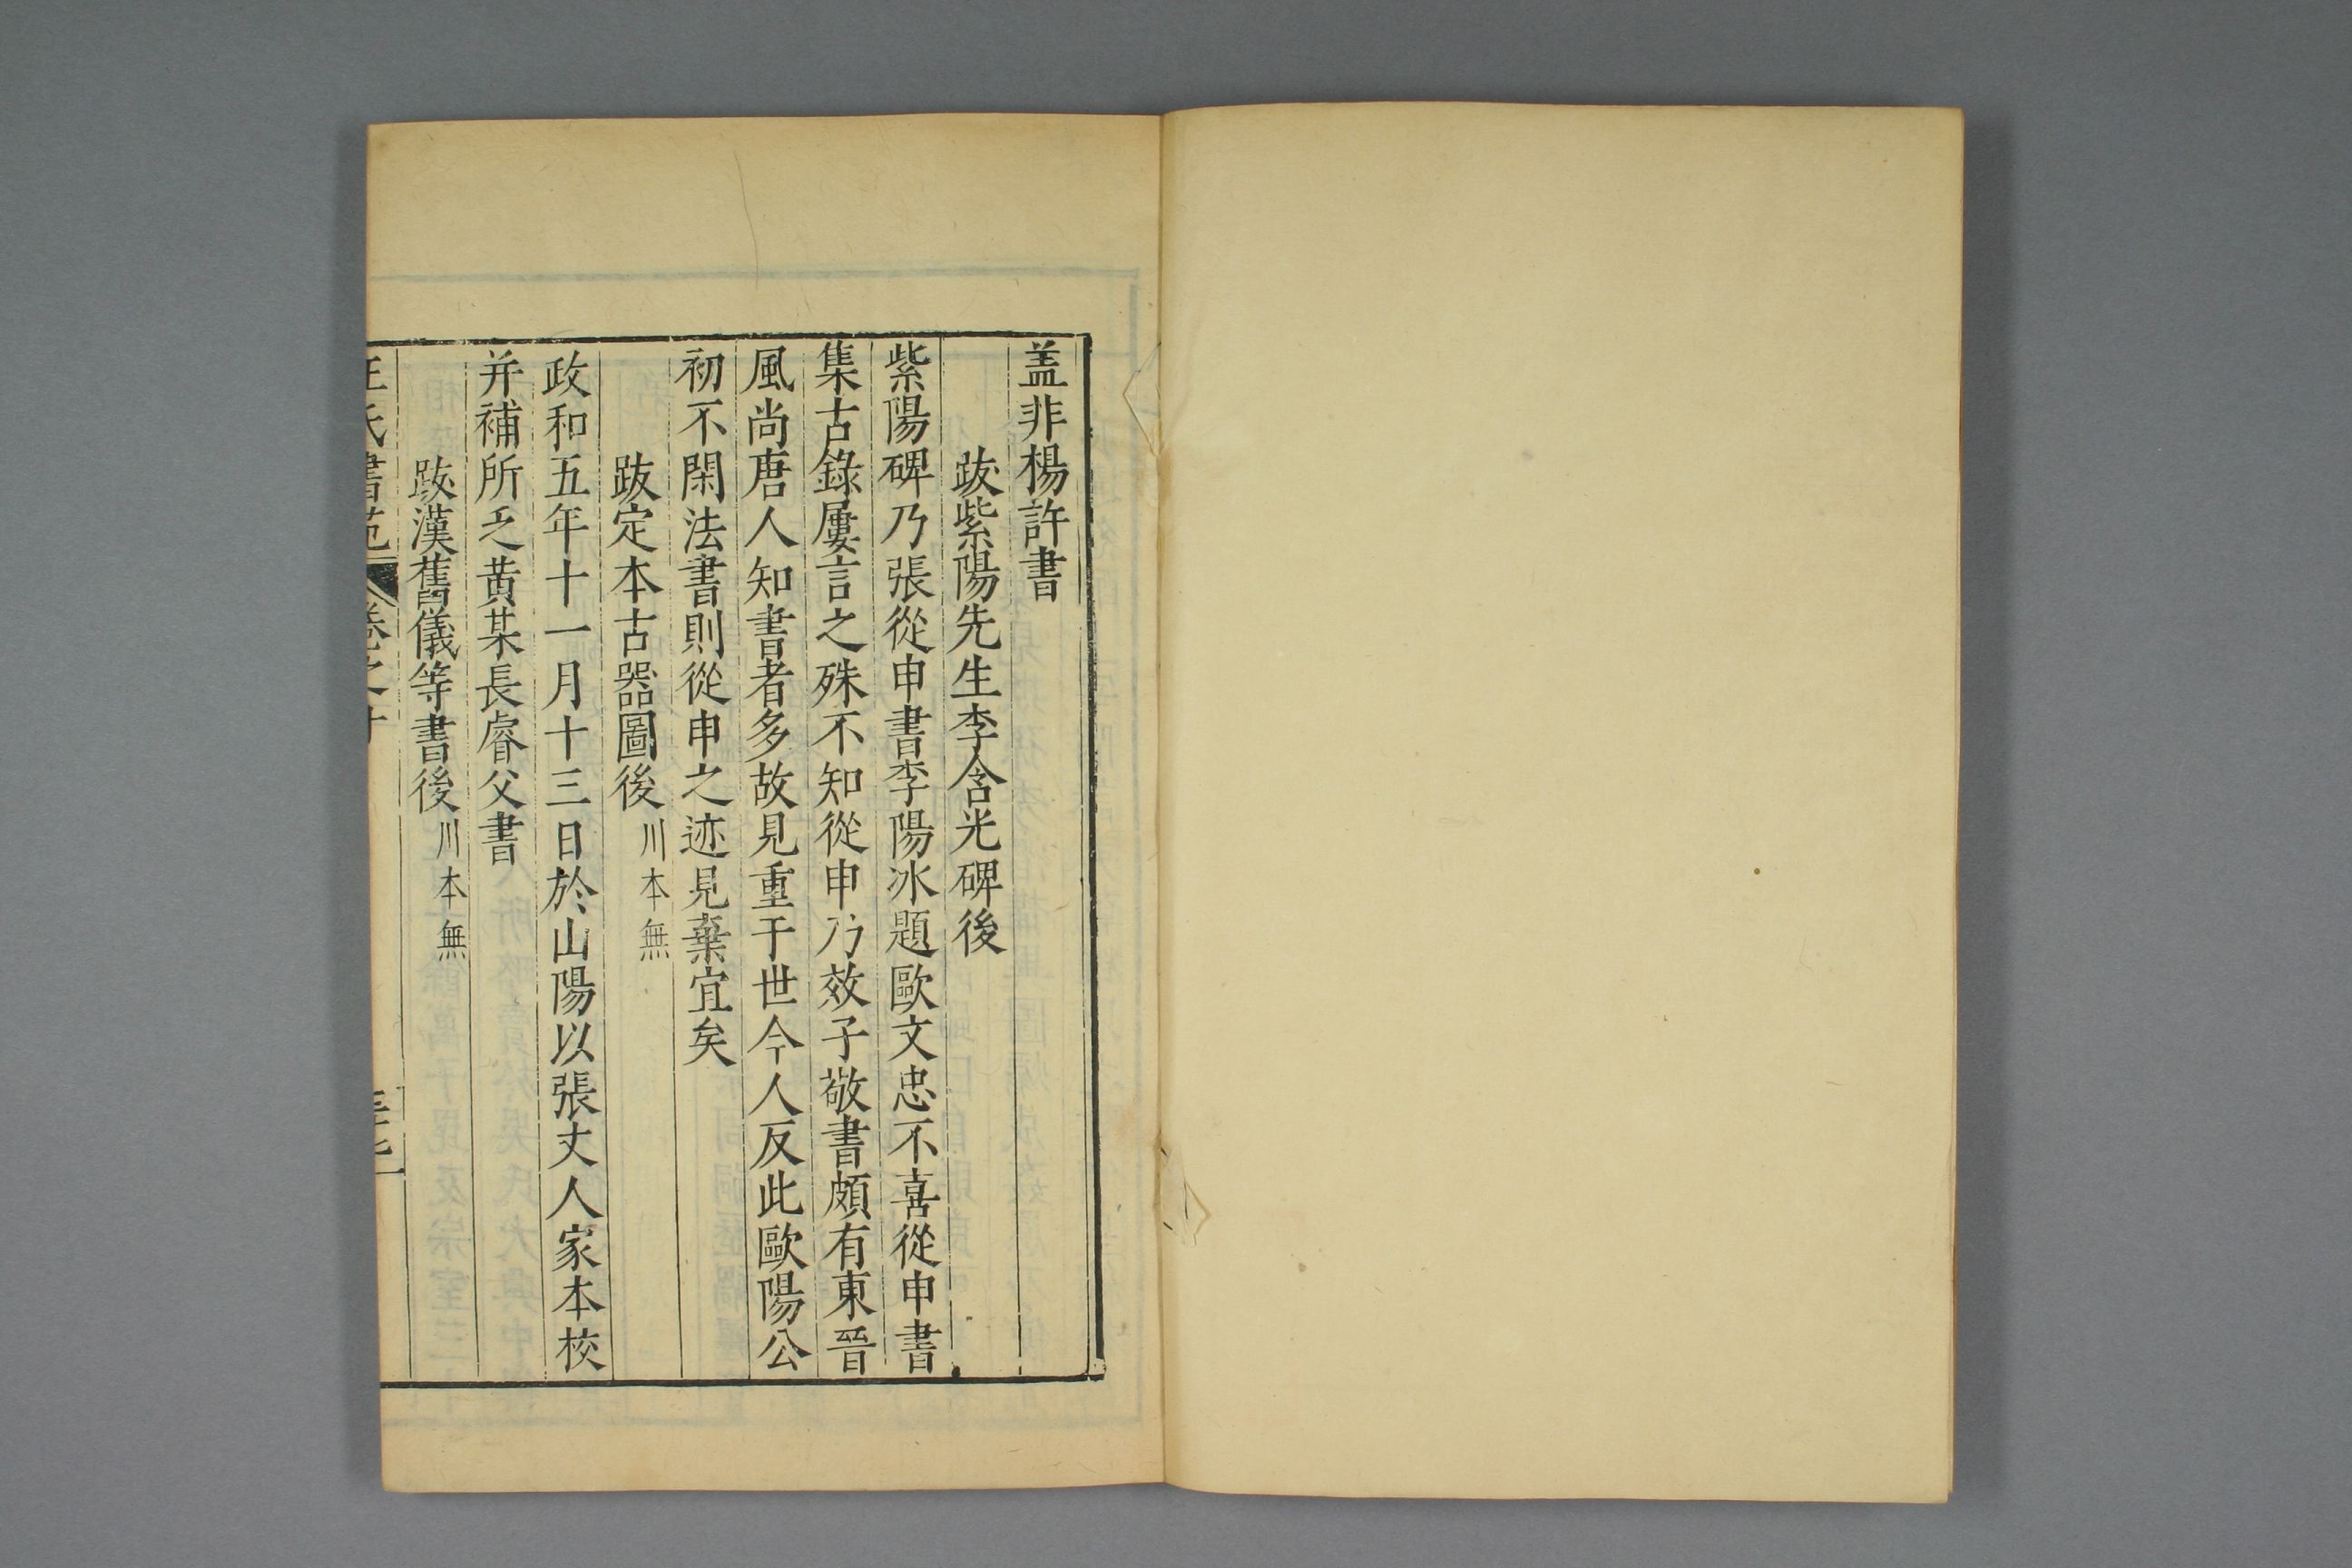 盖非楊許書
跋紫陽先生李含光碑後
紫陽碑乃張從申書李陽冰題歐文忠不喜從申書
集古錄屢言之殊不知從申乃效子敬書頗有東晉
風尚唐人知書者多故見重于世今人反此歐陽公
初不閑法書則從申之迹見棄宜矣
跋定本古器圖後川本無
政和五年十一月十三日於山陽以張丈人家本校
并補所乏黄某長睿父書
跋漢舊儀等書後川本無
王氏書苑 卷之十